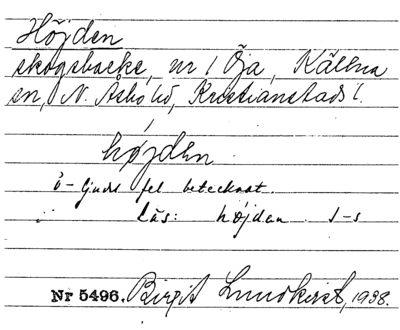 Höjden
skogsbacke, nr 1 Öja, Källna
sn, N. Åsbo hd, Kristianstads l.
højden
ö-ljuds fel betecknat.
läs: højdan S-s
Nr 5496. Birgit Lundkvist, 1938.